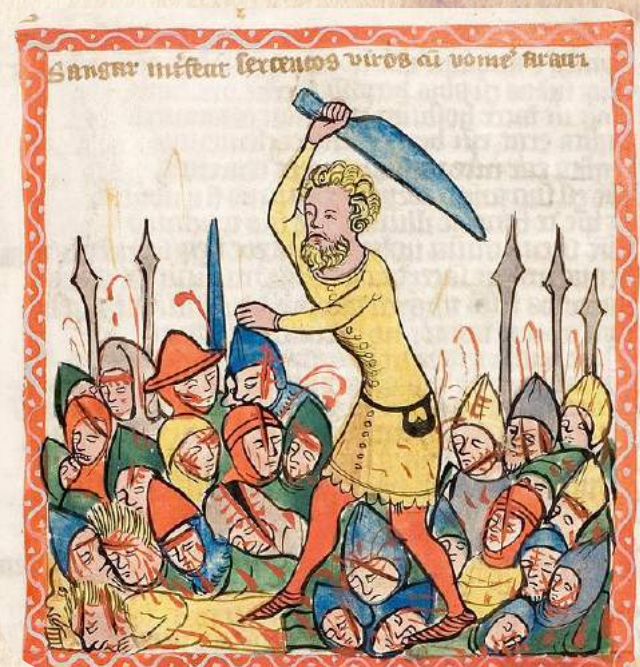 Sangar int'fecit sexcentos viros cū vome' aratri